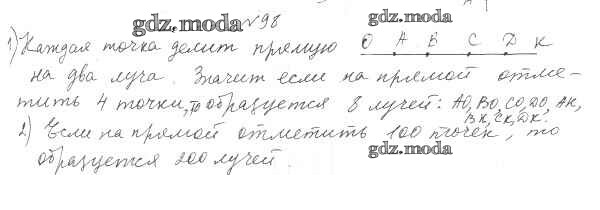 gdz.moda №98 gdz.moda
1) Каждая точка делит прямую O A B C D K
на два луча. Значит если на прямой отме-
тить 4 точки, то образуется 8 лучей: AO, BO, CO, DO, AK,
BK, CK, DK.
2) Если на прямой отметить 100 точек, то
образуется 200 лучей. gdz.moda